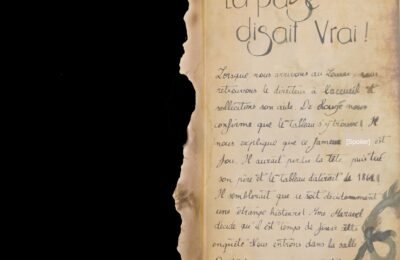 La page
disait Vrai !
Lorsque nous arrivons au Louvre, nous
retrouvons le directeur à l'accueil et
sollicitons son aide. De nous
confirme que le tableau s'y trouve ! Il
nous explique que ce fameux [Spoiler] est
fou. Il aurait perdu la tête, puis tué
son père et le tableau daterait de
Il semblerait que ce soit décidemment
une étrange histoire ! Mme
décide qu'il est temps de finir cette
enquête. Nous entrons dans la salle